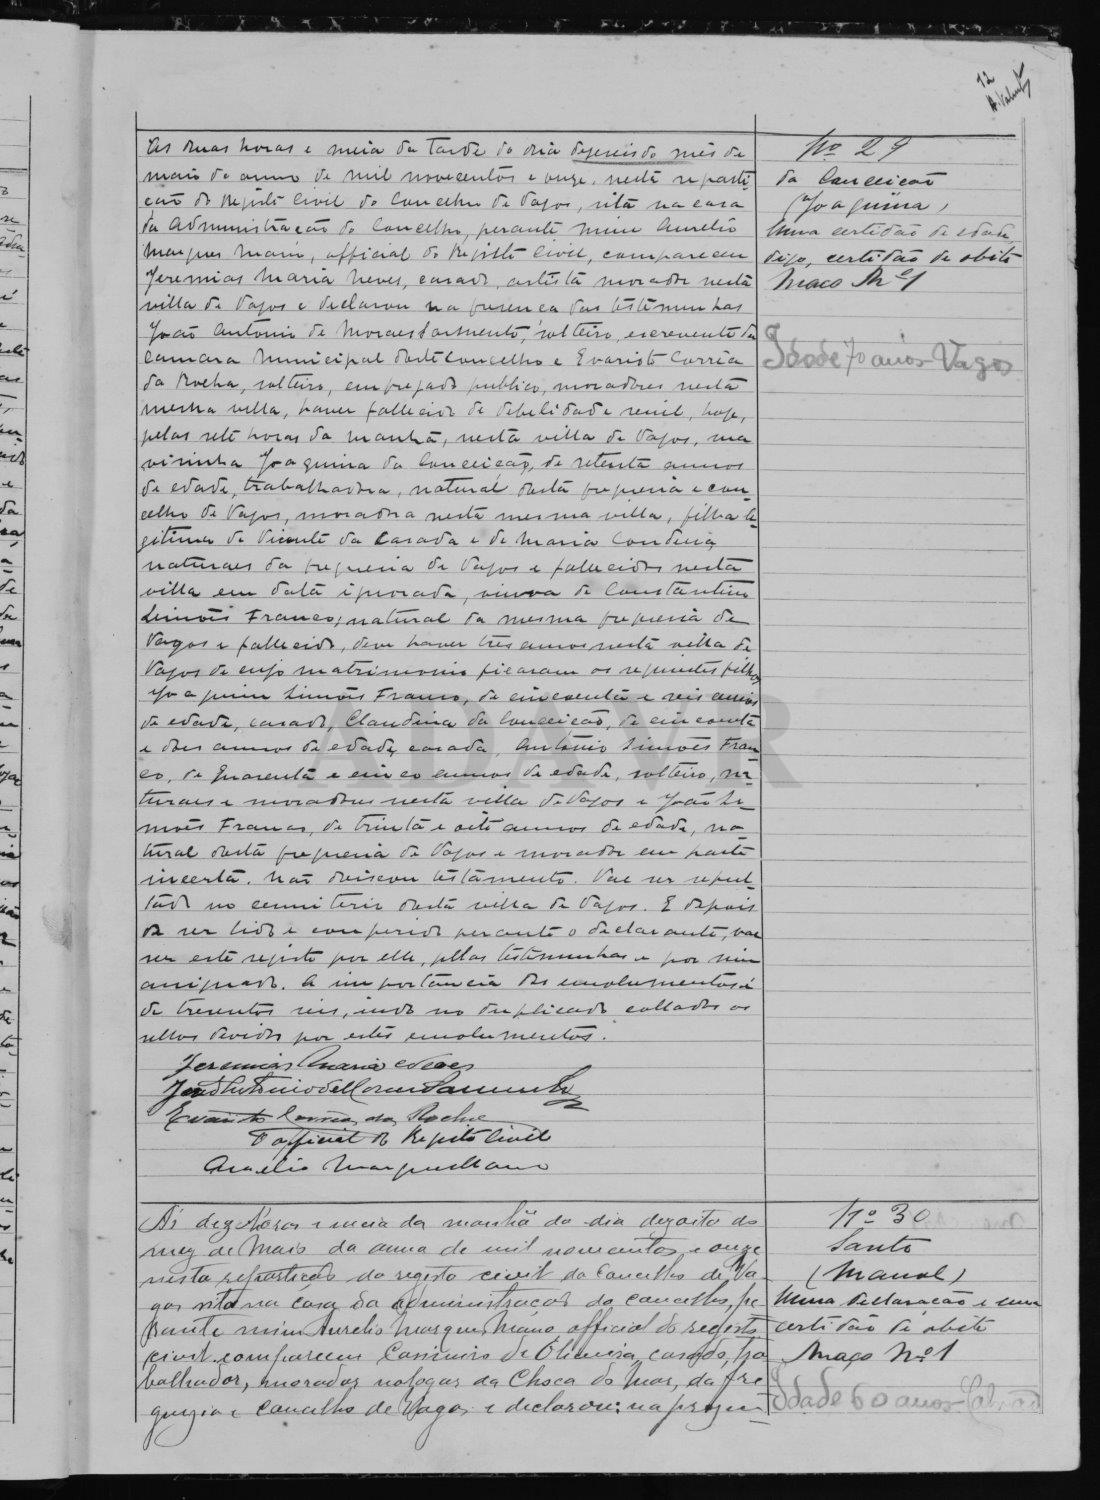 12
Nº 29
da Conceição
(Joaquina)
Uma certidão de edade
digo, certidão de obito
Maço Nº 1
Idade 70 anos Vagos
As duas horas e meia da tarde do dia dezeseis do mês de
maio do anno de mil novecentos e onze, nesta reparti-
ção do Registo Civil do Concelho de Vagos, sita na casa
da Administração do Concelho, perante mim Aurelio
Marques Mano, official do Registo Civil, compareceu
Jeremias Maria Neves, casado, artista morador nesta
villa de Vagos e declarou na presença das testemunhas
João Antonio de Moraes Sarmento, solteiro, escrevente da
Camara Municipal deste Concelho e Evaristo Corrêa
da Rocha, solteiro, empregado publico, moradores nesta
mesma villa, haver fallecido de debelidade senil, hoje,
pelas sete horas da manhã, nesta villa de Vagos, sua
visinha Joaquina da Conceição, de setenta annos
de edade, trabalhadora, natural desta freguesia e con-
celho de Vagos, moradora nesta mesma villa, filha le-
gitima de Vicente da e de Maria
naturaes da freguesia de Vagos e fallecidos nesta
villa em data ignorada, viuva de Constantino
Simões Franco, natural da mesma freguesia de
Vagos e fallecido, deve haver três annos nesta villa de
Vagos de cujo matrimonio ficaram os seguintes filhos
Joaquim Simões Franco, de cincoenta e seis annos
de edade, casado, Claudina da Conceição, de cincoenta
e dois annos de edade, casada, Antonio Simões Fran-
co, de quarenta e cinco annos de edade, solteiro, na-
turaes e moradores nesta villa de Vagos e João Si-
mões Franco, de trinta e oito annos de edade, na-
tural desta freguesia de Vagos e morador em parte
incerta. Não deixou testamento. Vae ser sepul-
tada no cemiterio desta villa de Vagos. E depois
de ser lido e conferido perante o declarante, vae
ser este registo por elle, pellas testemunhas e por mim
assignado. A importancia dos emolumentos é
de tresentos reis, indo no duplicado collados os
sellos devidos por estes emolumentos.
Jeremias Maria Neves
João Antonio de Moraes Sarmento
Evaristo Corrêa da Rocha
O official do Registo Civil
Aurelio Marques Mano
ADAVR
Nº 30
Santo
(Manoel)
Uma declaração e uma
certidão de obito
Maço Nº 1
Idade 60 anos
Ás dez horas e meia da manhã do dia dezoito do
mez de Maio do anno de mil novecentos e onze
nesta repartição do registo civil do Concelho de Va-
gos sita na casa da administração do concelho, pe-
rante mim Aurelio Marques Mano, official do registo
civil compareceu Casimiro de Oliveira, casado, tra-
balhador, morador no logar da Choca do Mar, da fre-
guezia e Concelho de Vagos e declarou: na prezen-